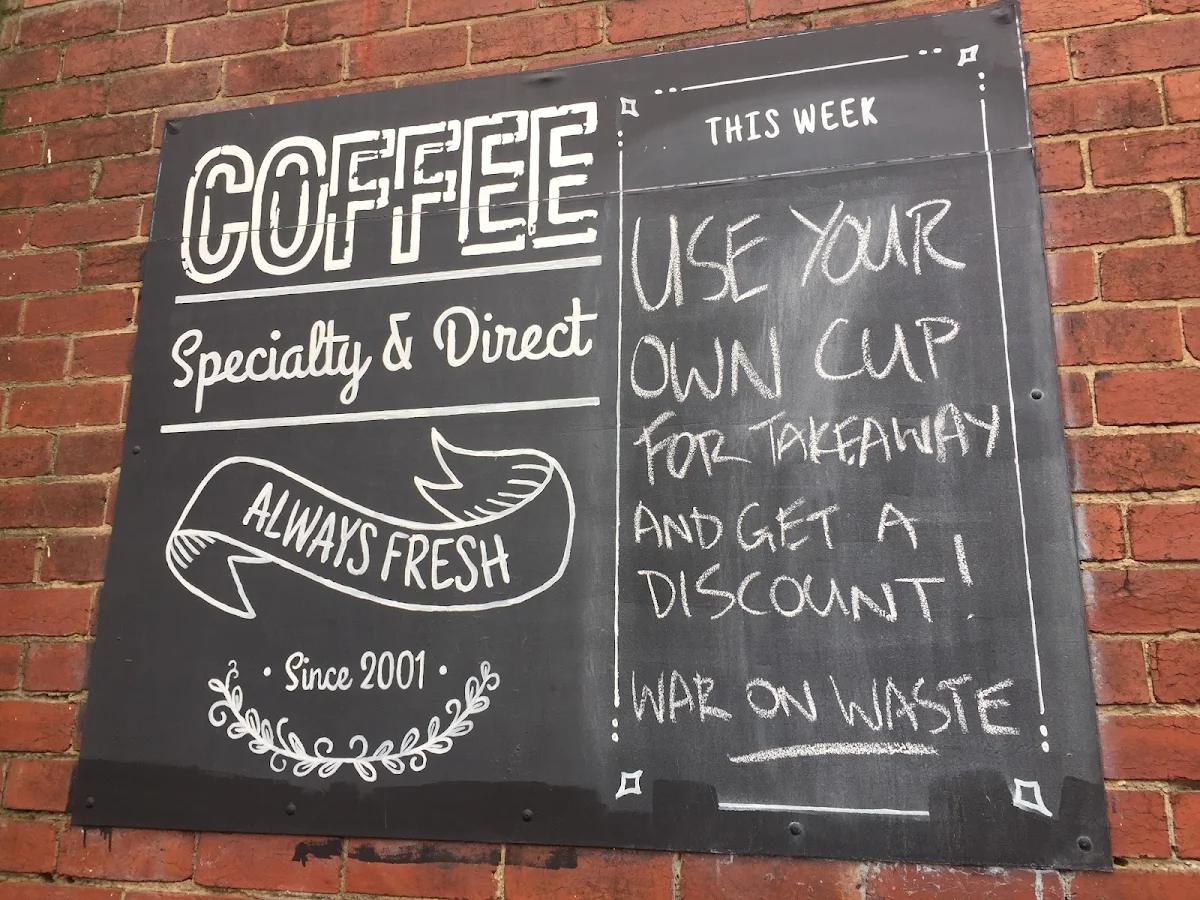 COFFEE
Specialty & Direct
ALWAYS FRESH
Since 2001
THIS WEEK
USE YOUR
OWN CUP
FOR TAKEAWAY
AND GET A
DISCOUNT!
WAR ON WASTE